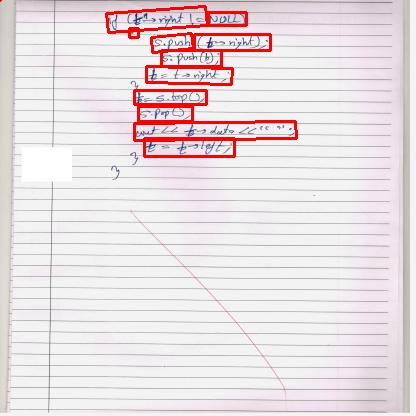 if (t->right != NULL)
{
s.push(t->right);
s.push(t);
t = t->right;
}
t = s.top();
s.pop();
cout << t->data << " ";
t = t->left;
}
}